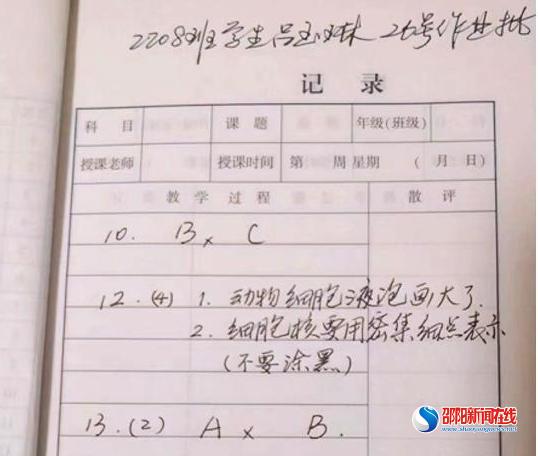 2208班学生吕玉妹 26号作业批
记 录
科 目 课 题 年级(班级)
授课老师 授课时间 第 周 星期 ( 月 日)
教 学 过 程 散 评
10. B× C
12.(4) 1. 动物细胞液泡画大了.
2. 细胞核要用密集细点表示
(不要涂黑)
13.(2) A × B.
邵阳新闻在线
www.shaoyangnews.net